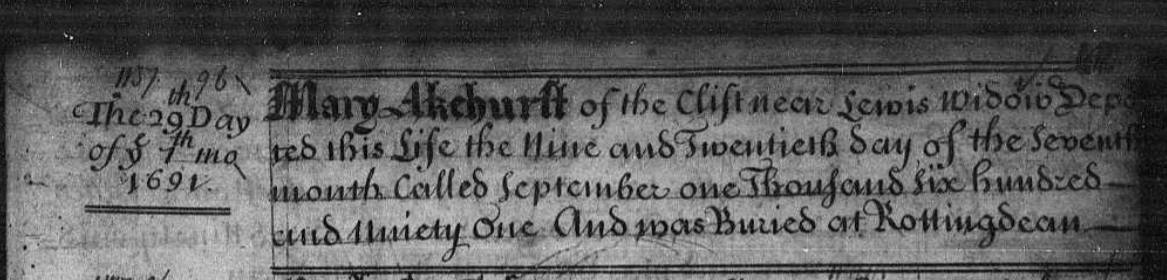 1157. 96
The 29th Day
of ye 7th mo
1691.
Mary Akehurst of the Clift near Lewis Widow Depar
ted this Life the Nine and Twentieth day of the Seventh
month Called September one Thousand six hundred
and Ninety One And was Buried at Rottingdean